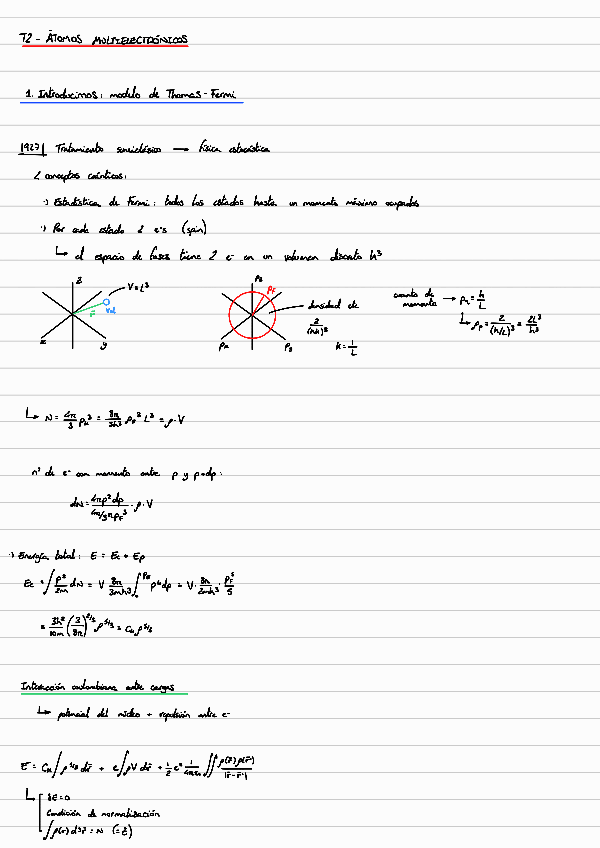 T2 - ÁTOMOS MULTIELECTRÓNICOS
1. Introducimos: modelo de Thomas-Fermi
1927 Tratamiento semiclásico → física estadística
2 conceptos cuánticos:
·) Estadística de Fermi: todos los estados hasta un momento máximo ocupados
·) Por cada estado 2 e⁻s (spin)
↳ el espacio de fases tiene 2 e⁻ en un volumen discreto h³
z V=L³ r⃗ vol x y
p_z p_F p_x p_y densidad de 2/(hk)³ k=1/L
cuanto de momento → p_L = h/L
↳ ρ_p = 2/(h/L)³ = 2L³/h³
↳ N = 4π/3 p_F³ = 8π/3h³ p_F³ L³ = ρ·V
nº de e⁻ con momento entre p y p+dp:
dN = 4πp²dp / 4π/3 p_F³ · ρ·V
·) Energía total: E = Ec + Ep
Ec = ∫ p²/2m dN = V 8π/2mh³ ∫₀^{p_F} p⁴dp = V · 8π/2mh³ · p_F⁵/5
= 3h²/10m (3/8π)^{2/3} ρ^{5/3} = C_k ρ^{5/3}
Interacción coulombiana entre cargas
↳ potencial del núcleo + repulsión entre e⁻
E = C_k ∫ ρ^{5/3} dr⃗ + e∫ρV dr⃗ + 1/2 e² 1/4πε₀ ∬ ρ(r⃗)ρ(r⃗')/|r⃗-r⃗'|
↳ δE=0
Condición de normalización
∫ρ(r) d³r⃗ = N (=Z)